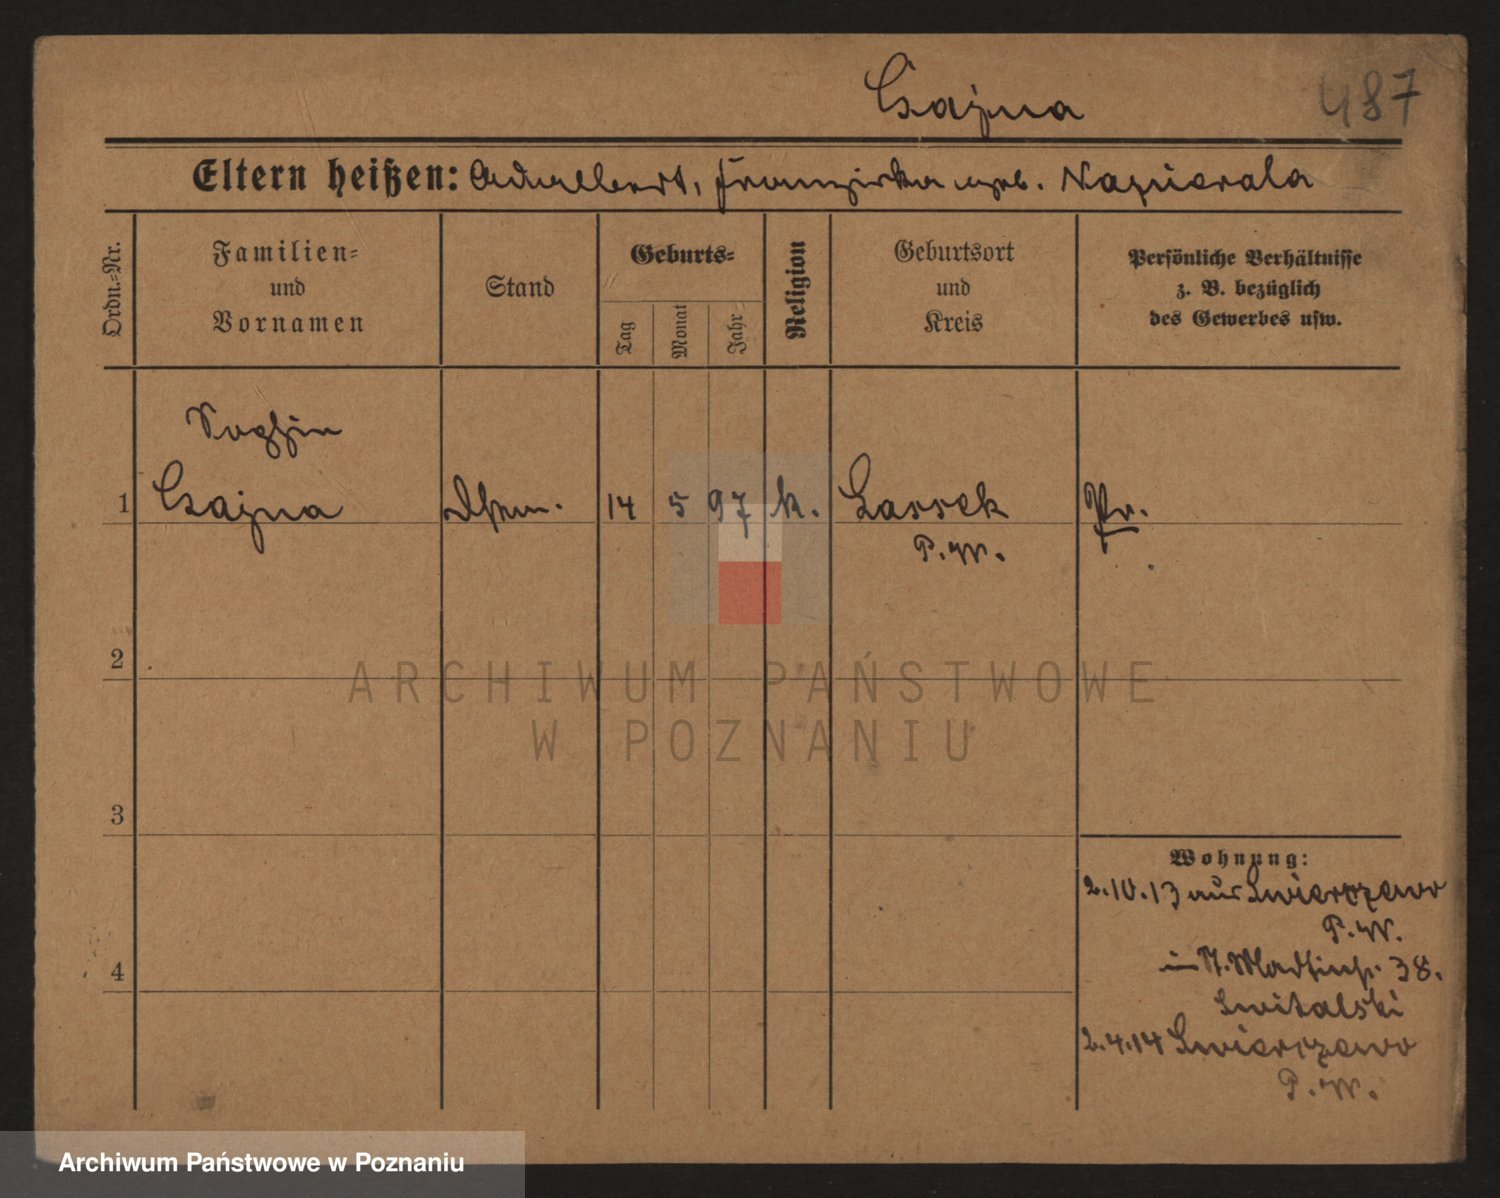 Czajna 487
Eltern heißen: Adalbert, Franziska geb. Napierala
Ordn.=Nr.
Familien=
und
Vornamen
Stand
Geburts=
Tag
Monat
Jahr
Religion
Geburtsort
und
Kreis
Persönliche Verhältnisse
z. B. bezüglich
des Gewerbes usw.
1 Czajna 14 5 97 k. Lassek Pr.
P.W.
2
3
4
Wohnung:
2.10.13 aus Swierczewo
P.W.
38.
Switalski
2.4.14 Swierczewo
P.W.
ARCHIWUM PAŃSTWOWE
W POZNANIU
Archiwum Państwowe w Poznaniu